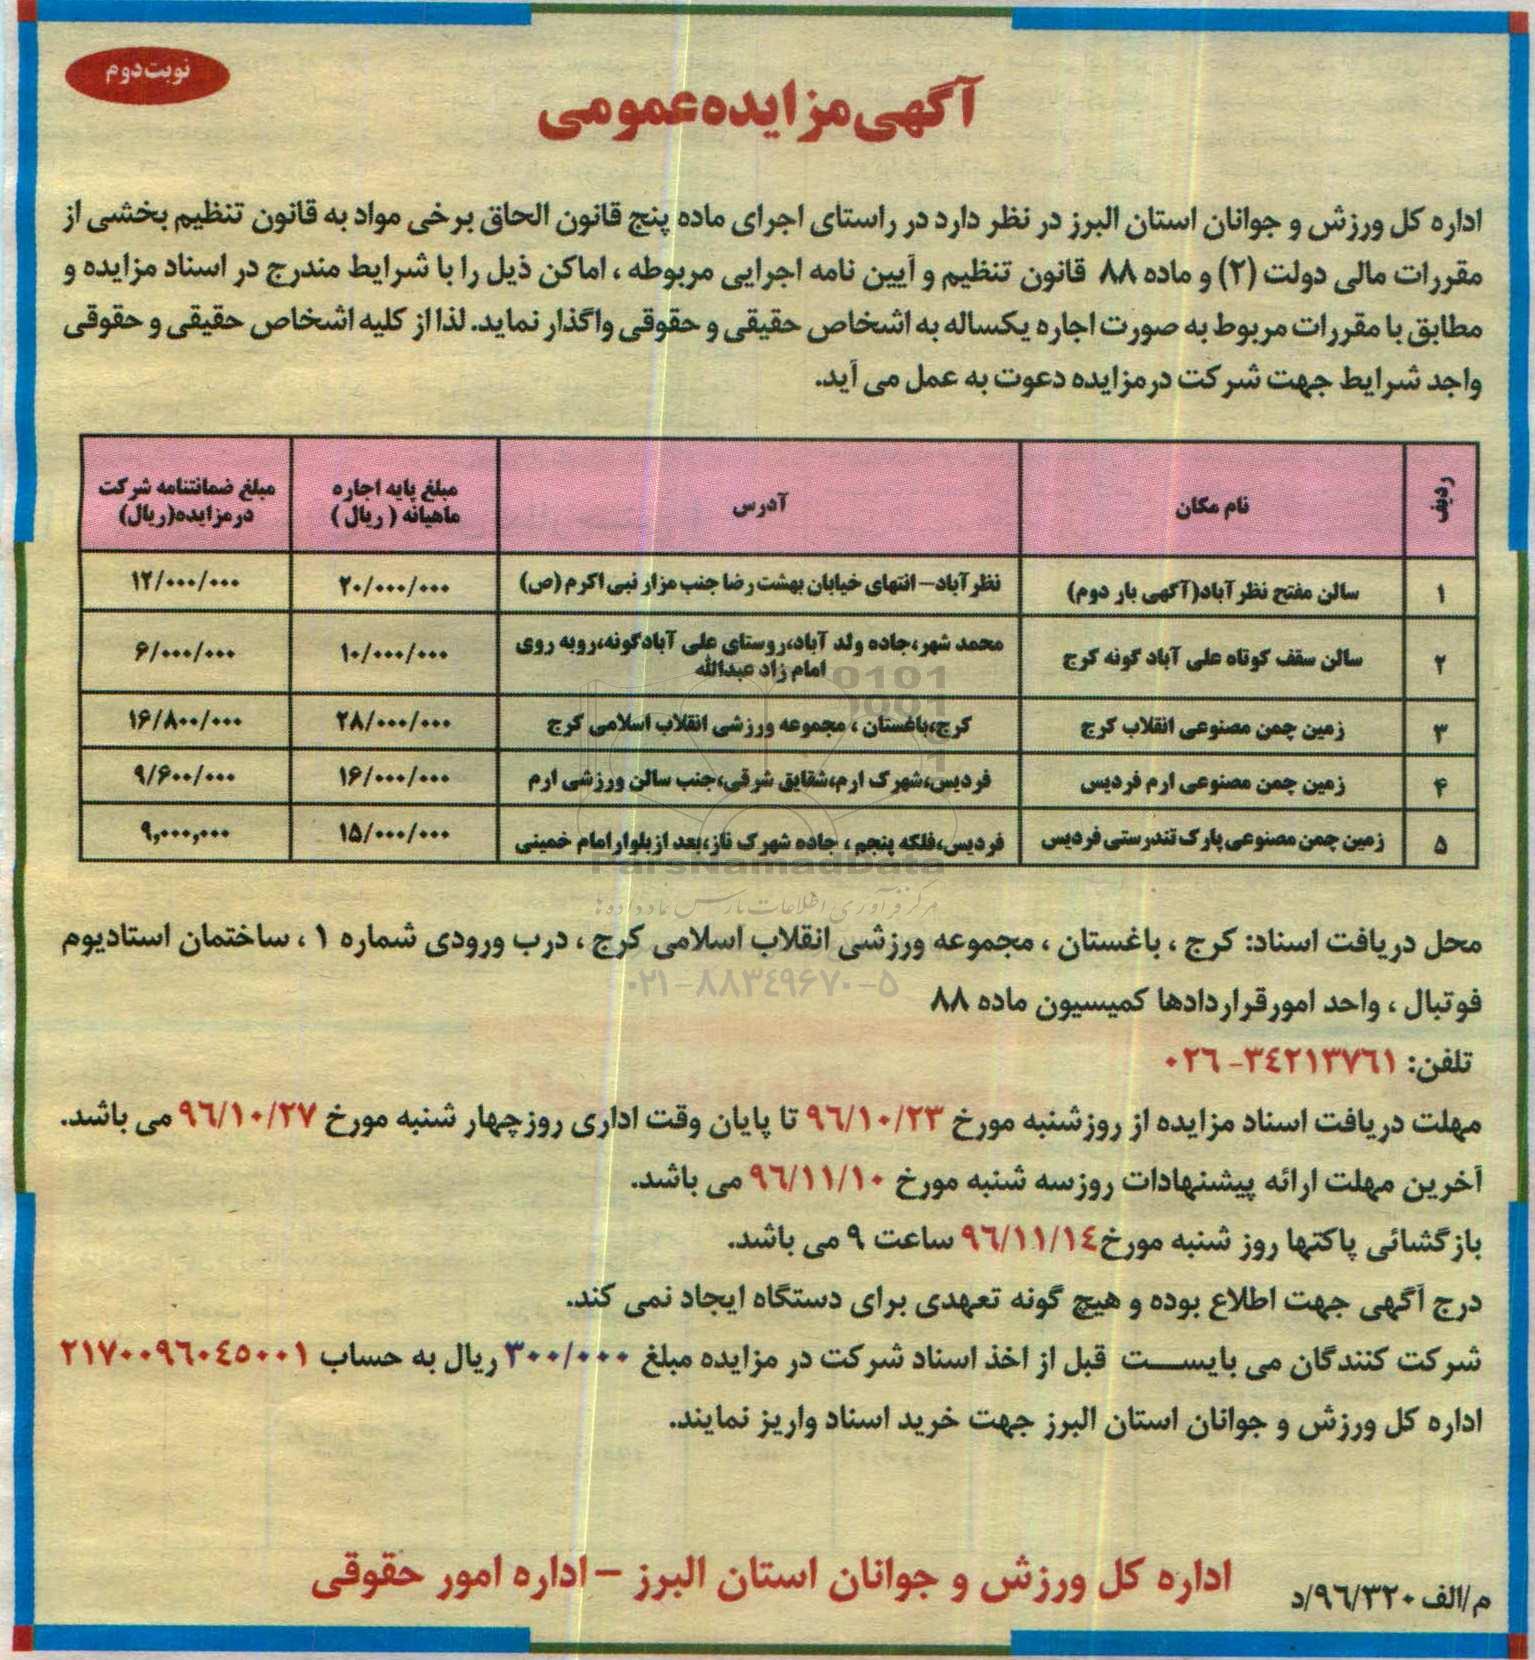 نوبت دوم
آگهی مزایده عمومی
اداره کل ورزش و جوانان استان البرز در نظر دارد در راستای اجرای ماده پنج قانون الحاق برخی مواد به قانون تنظیم بخشی از
مقررات مالی دولت (۲) و ماده ۸۸ قانون تنظیم و آیین نامه اجرایی مربوطه ، اماکن ذیل را با شرایط مندرج در اسناد مزایده و
مطابق با مقررات مربوط به صورت اجاره یکساله به اشخاص حقیقی و حقوقی واگذار نماید. لذا از کلیه اشخاص حقیقی و حقوقی
واجد شرایط جهت شرکت درمزایده دعوت به عمل می آید.
ردیف	نام مکان	آدرس	مبلغ پایه اجاره ماهیانه ( ریال )	مبلغ ضمانتنامه شرکت درمزایده(ریال)
۱	سالن مفتح نظرآباد(آگهی بار دوم)	نظرآباد– انتهای خیابان بهشت رضا جنب مزار نبی اکرم (ص)	۲۰/۰۰۰/۰۰۰	۱۲/۰۰۰/۰۰۰
۲	سالن سقف کوتاه علی آباد گونه کرج	محمد شهر،جاده ولد آباد،روستای علی آبادگونه،روبه روی امام زاد عبدالله	۱۰/۰۰۰/۰۰۰	۶/۰۰۰/۰۰۰
۳	زمین چمن مصنوعی انقلاب کرج	کرج،باغستان ، مجموعه ورزشی انقلاب اسلامی کرج	۲۸/۰۰۰/۰۰۰	۱۶/۸۰۰/۰۰۰
۴	زمین چمن مصنوعی ارم فردیس	فردیس،شهرک ارم،شقایق شرقی،جنب سالن ورزشی ارم	۱۶/۰۰۰/۰۰۰	۹/۶۰۰/۰۰۰
۵	زمین چمن مصنوعی پارک تندرستی فردیس	فردیس،فلکه پنجم ، جاده شهرک ناز،بعد ازبلوارامام خمینی	۱۵/۰۰۰/۰۰۰	۹,۰۰۰,۰۰۰
0101
ParsNamadData
مرکز فرآوری اطلاعات پارس نماد داده ها
محل دریافت اسناد: کرج ، باغستان ، مجموعه ورزشی انقلاب اسلامی کرج ، درب ورودی شماره ۱ ، ساختمان استادیوم
۰۲۱-۸۸۳۴۹۶۷۰-۵
فوتبال ، واحد امورقراردادها کمیسیون ماده ۸۸
تلفن: ۳۴۲۱۳۷۶۱- ۰۲۶
مهلت دریافت اسناد مزایده از روزشنبه مورخ ۹۶/۱۰/۲۳ تا پایان وقت اداری روزچهار شنبه مورخ ۹۶/۱۰/۲۷ می باشد.
آخرین مهلت ارائه پیشنهادات روزسه شنبه مورخ ۹۶/۱۱/۱۰ می باشد.
بازگشائی پاکتها روز شنبه مورخ۹۶/۱۱/۱۴ ساعت ۹ می باشد.
درج آگهی جهت اطلاع بوده و هیچ گونه تعهدی برای دستگاه ایجاد نمی کند.
شرکت کنندگان می بایست قبل از اخذ اسناد شرکت در مزایده مبلغ ۳۰۰/۰۰۰ ریال به حساب ۲۱۷۰۰۹۶۰۴۵۰۰۱
اداره کل ورزش و جوانان استان البرز جهت خرید اسناد واریز نمایند.
اداره کل ورزش و جوانان استان البرز – اداره امور حقوقی
م/الف ۹۶/۳۲۰/د